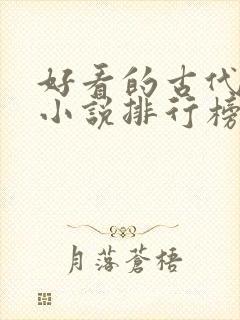 好看的古代
小説排行榜
月落蒼梧